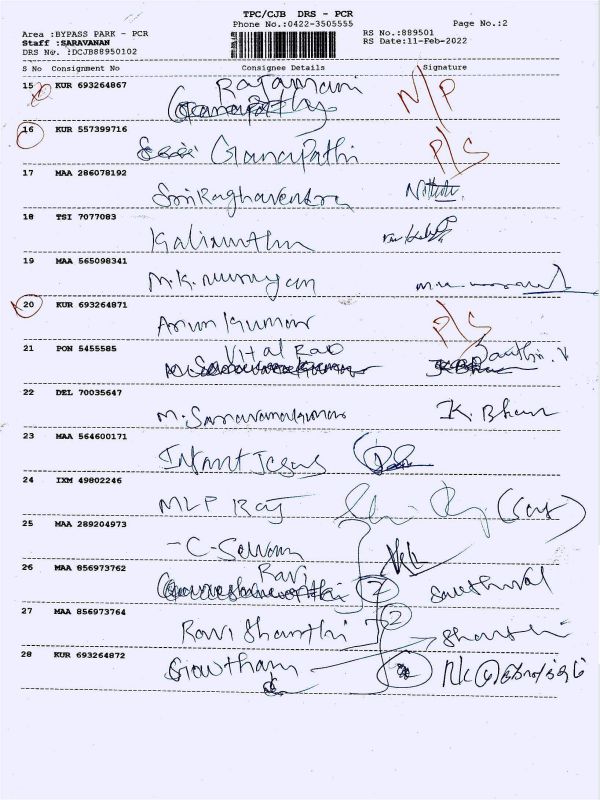 TPC/CJB DRS - PCR
Phone No.:0422-3505555
Page No.:2
Area :BYPASS PARK - PCR
Staff :SARAVANAN
DRS No. :DCJB88950102
RS No.:889501
RS Date:11-Feb-2022
S No Consignment No Consignee Details Signature
15 KUR 693264867 Rajamani N/P
16 KUR 557399716 Ganapathi P/S
17 MAA 286078192 Sri Raghavendra
18 TSI 7077083
19 MAA 565098341
20 KUR 693264871 Arun Kumar P/S
21 PON 5455585 Vital Rao Santhi. V
22 DEL 70035647 M. Saravanakumar K. Bhanu
23 MAA 564600171 Infant Jesus
24 IXM 49802246 MLP Raj
25 MAA 289204973 - C- Selvam
26 MAA 856973762 Ravi
27 MAA 856973764 Ravi Shanthi 2
28 KUR 693264872 Gowtham